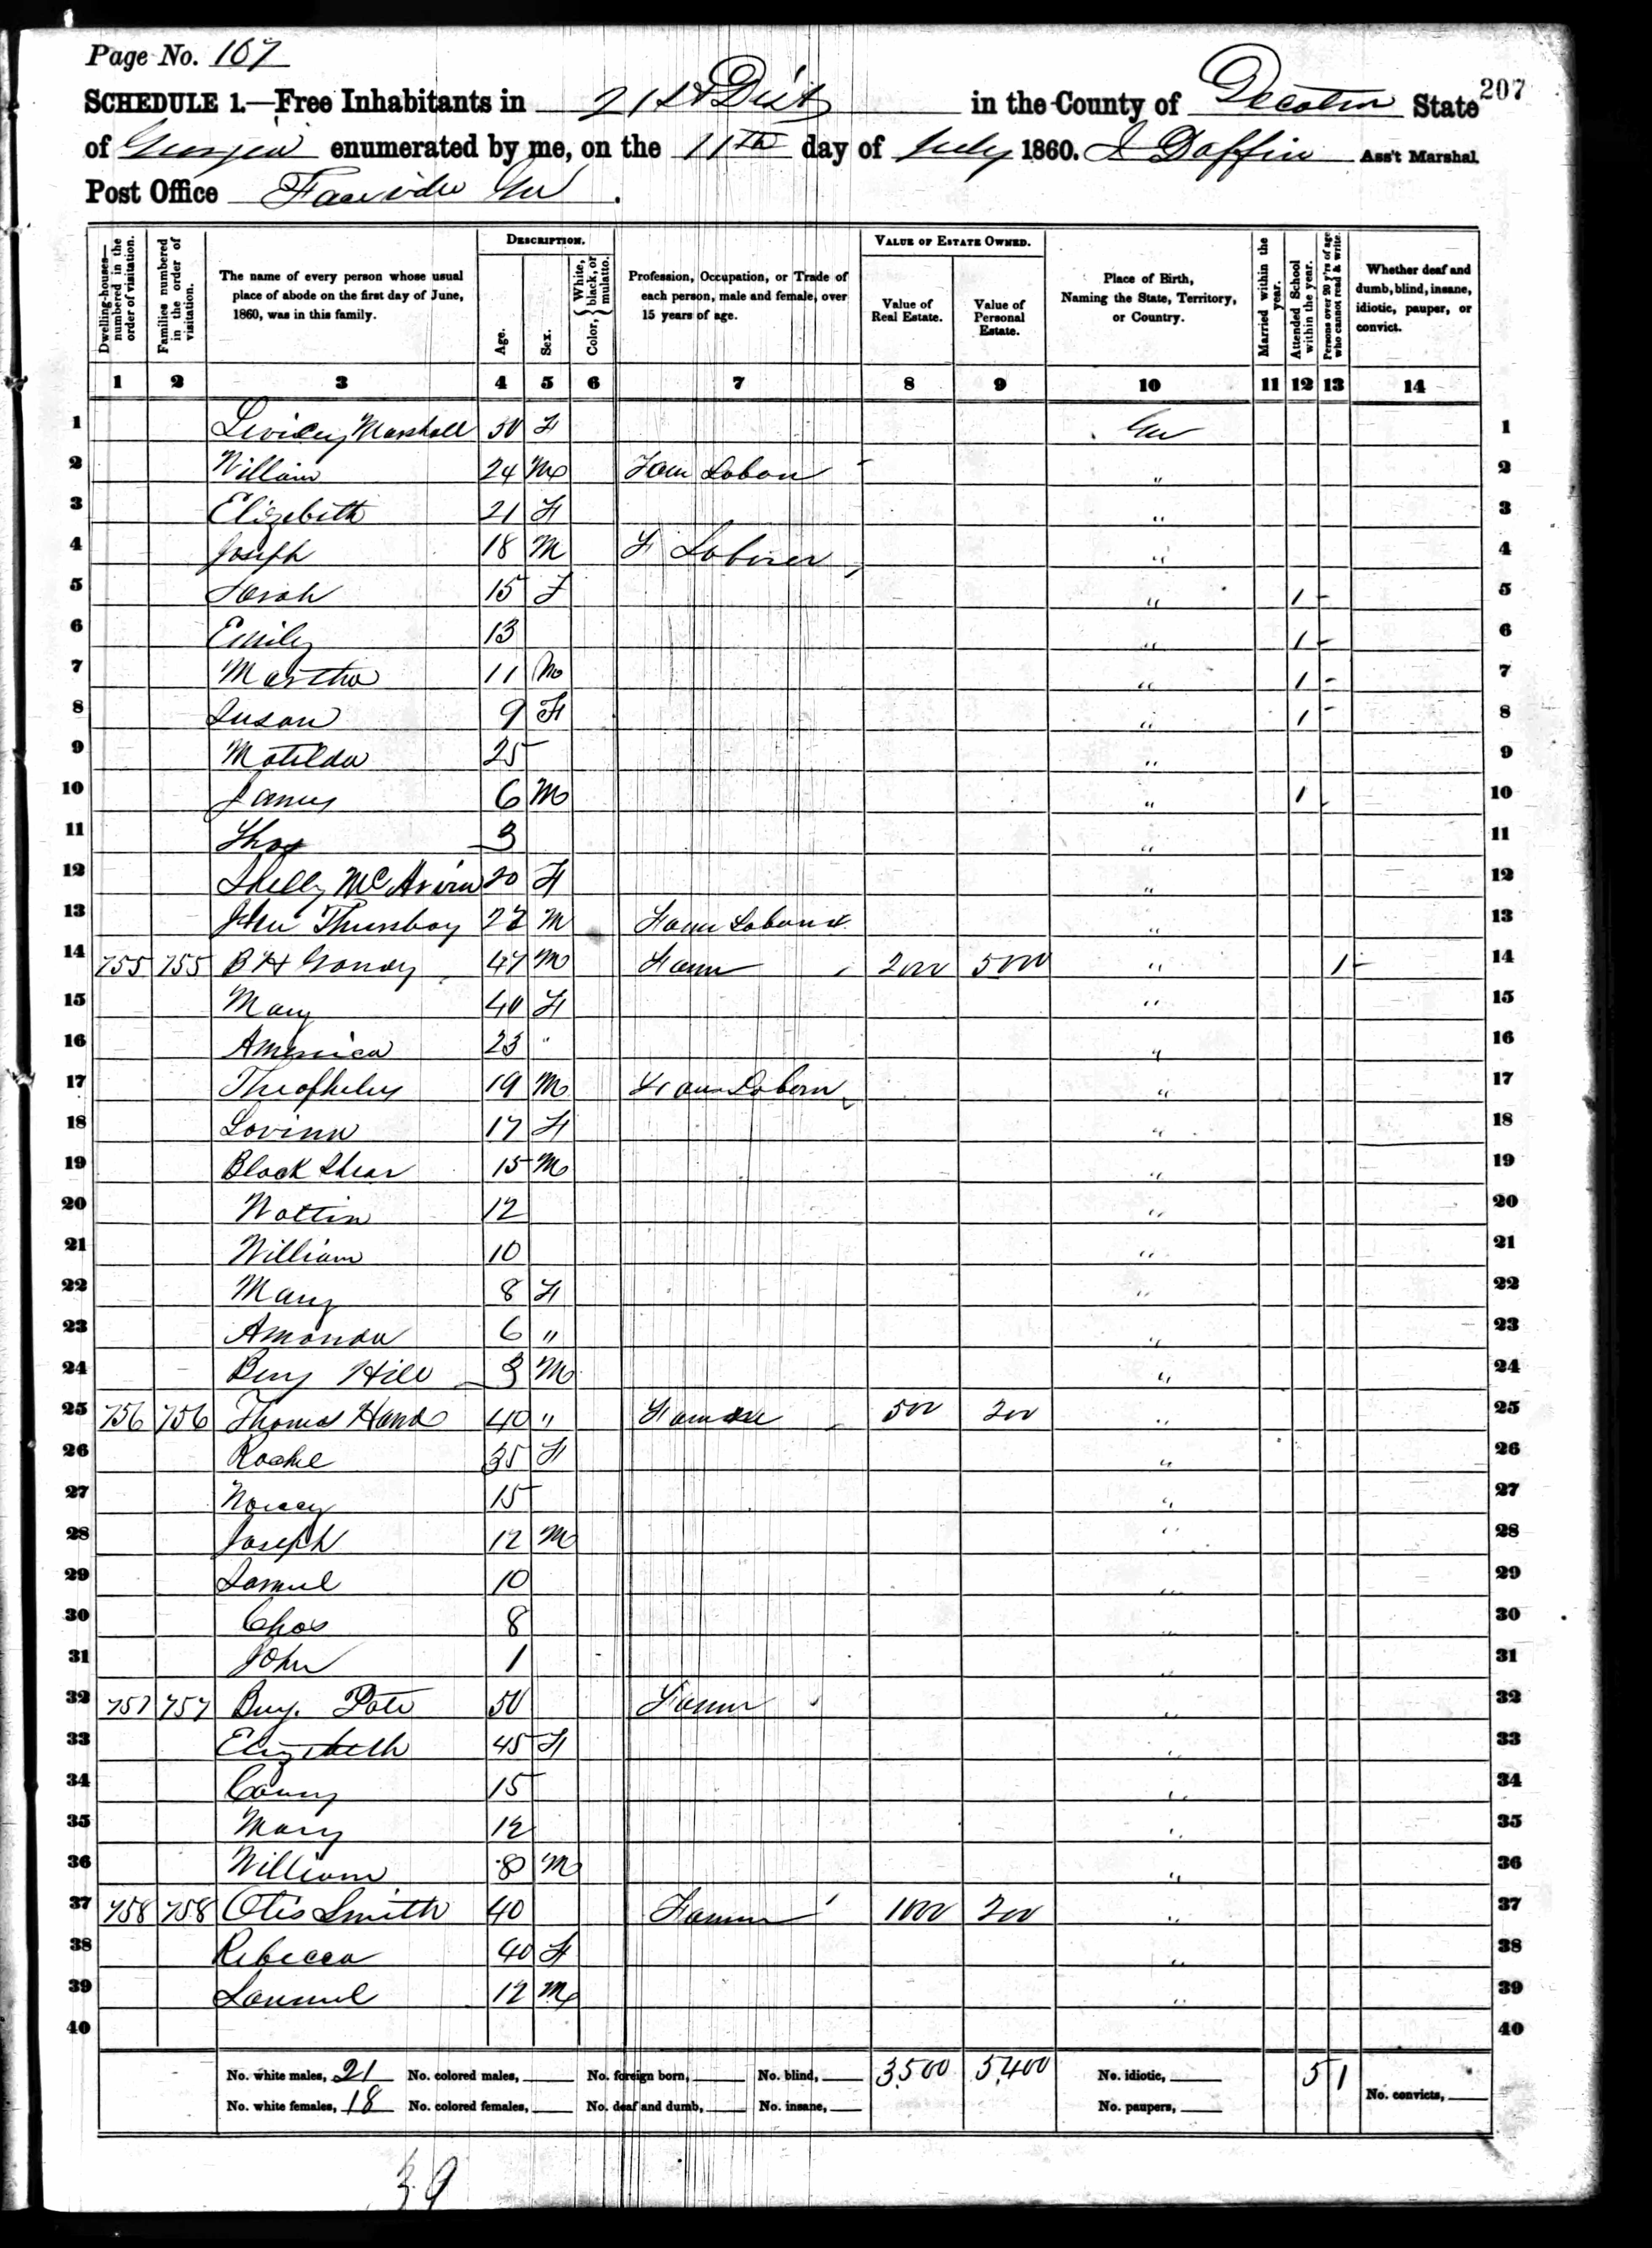 Page No. 167
207
SCHEDULE 1.—Free Inhabitants in 21st Dist in the County of Decatur State
of Georgia enumerated by me, on the 11th day of July 1860. I Daffin Ass't Marshal.
Post Office
DESCRIPTION. VALUE OF ESTATE OWNED.
Dwelling-houses—numbered in the order of visitation. Families numbered in the order of visitation. The name of every person whose usual place of abode on the first day of June, 1860, was in this family. Age. Sex. Color, {White, black, or mulatto. Profession, Occupation, or Trade of each person, male and female, over 15 years of age. Value of Real Estate. Value of Personal Estate. Place of Birth, Naming the State, Territory, or Country. Married within the year. Attended School within the year. Persons over 20 y'rs of age who cannot read & write. Whether deaf and dumb, blind, insane, idiotic, pauper, or convict.
1 2 3 4 5 6 7 8 9 10 11 12 13 14
1 Marshall 50 F 1
2 William 24 M " 2
3 Elizabeth 21 F " 3
4 Joseph 18 M F Laborer " 4
5 Sarah 15 F " 1 5
6 Emily 13 " 1 6
7 Martha 11 M " 1 7
8 Susan 9 F " 1 8
9 Matilda 25 " 9
10 James 6 M " 1 10
11 Thos 3 " 11
12 20 F " 12
13 M " 13
14 755 755 B H Gandy 47 M 2000 5000 " 1 14
15 Mary 40 F " 15
16 America 23 " " 16
17 Theophilus 19 M " 17
18 Lovina 17 F " 18
19 Black Shear 15 M " 19
20 12 " 20
21 William 10 " 21
22 Mary 8 F " 22
23 Amanda 6 " " 23
24 Benj Hill 3 M " 24
25 756 756 Thomas Hand 40 " 500 200 " 25
26 35 F " 26
27 15 " 27
28 Joseph 12 M " 28
29 Samuel 10 " 29
30 Chas 8 " 30
31 John 1 " 31
32 757 757 Benj. Pate 50 Farmer " 32
33 Elizabeth 45 F " 33
34 15 " 34
35 Mary 12 " 35
36 William 8 M " 36
37 758 758 Otis Smith 40 Farmer 1000 200 " 37
38 Rebecca 40 F " 38
39 Samuel 12 M " 39
40 40
No. white males, 21 No. colored males, No. foreign born, No. blind, 3,500 5,400 No. idiotic, 5 1 No. convicts,
No. white females, 18 No. colored females, No. deaf and dumb, No. insane, No. paupers,
39